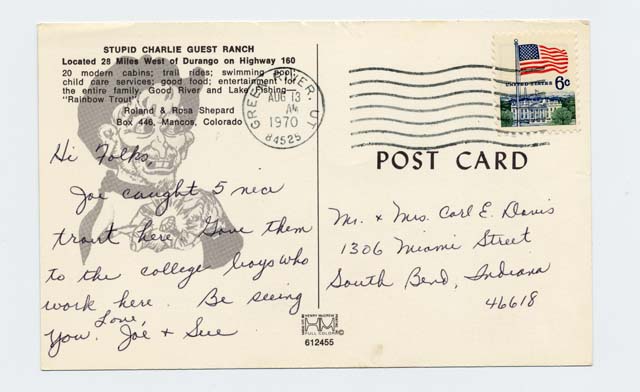 STUPID CHARLIE GUEST RANCH
Located 28 Miles West of Durango on Highway 160
20 modern cabins; trail rides; swimming pool;
child care services; good food; entertainment for
the entire family. Good River and Lake Fishing—
"Rainbow Trout"
Roland & Rosa Shepard
Box 446, Mancos, Colorado
Hi Folks,
Joe caught 5 nice
trout here. Gave them
to the college boys who
work here. Be seeing
you. Love,
Joe + Sue
GREEN RIVER, UT
AUG 13
AM
1970
84525
UNITED STATES
6c
POST CARD
Mr. + Mrs. Carl E. Davis
1306 Miami Street
South Bend, Indiana
46618
HENRY McGREW
HM
FULL COLOR ©
612455